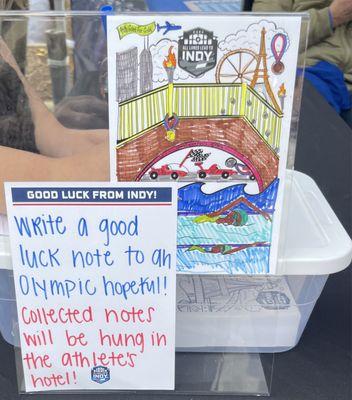 ALL ROADS LEAD TO
INDY
GOOD LUCK FROM INDY!
Write a good
luck note to an
Olympic hopeful!
Collected notes
will be hung in
the athlete's
hotel!